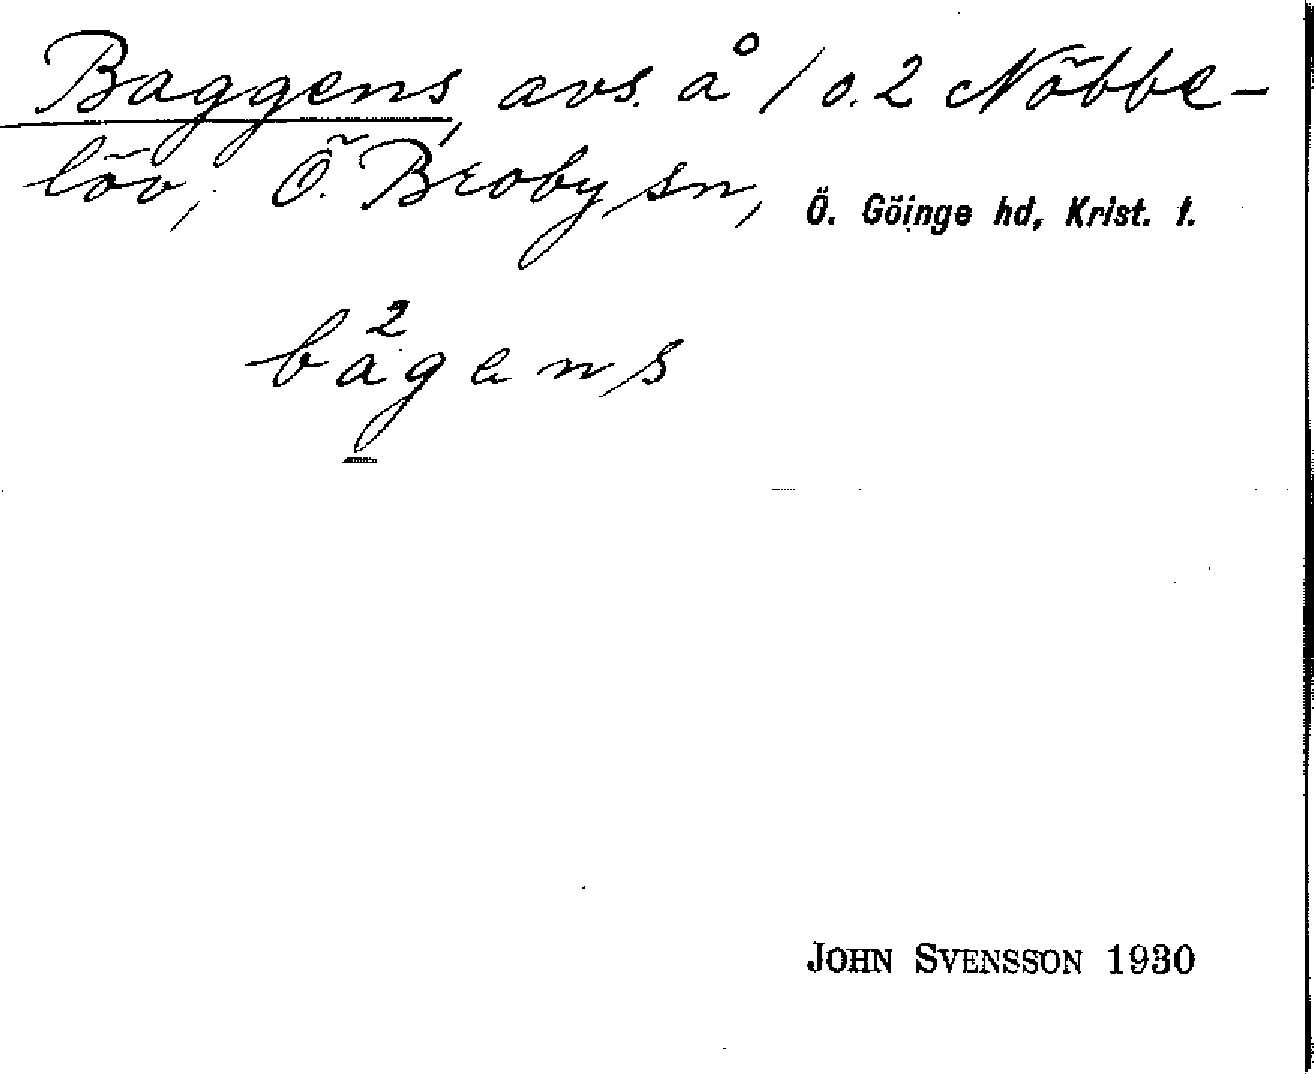 Baggens, avs. å 1 o. 2 Nöbbe-
löv, Ö. Broby sn, Ö. Göinge hd, Krist. l.
ba²gens
JOHN SVENSSON 1930